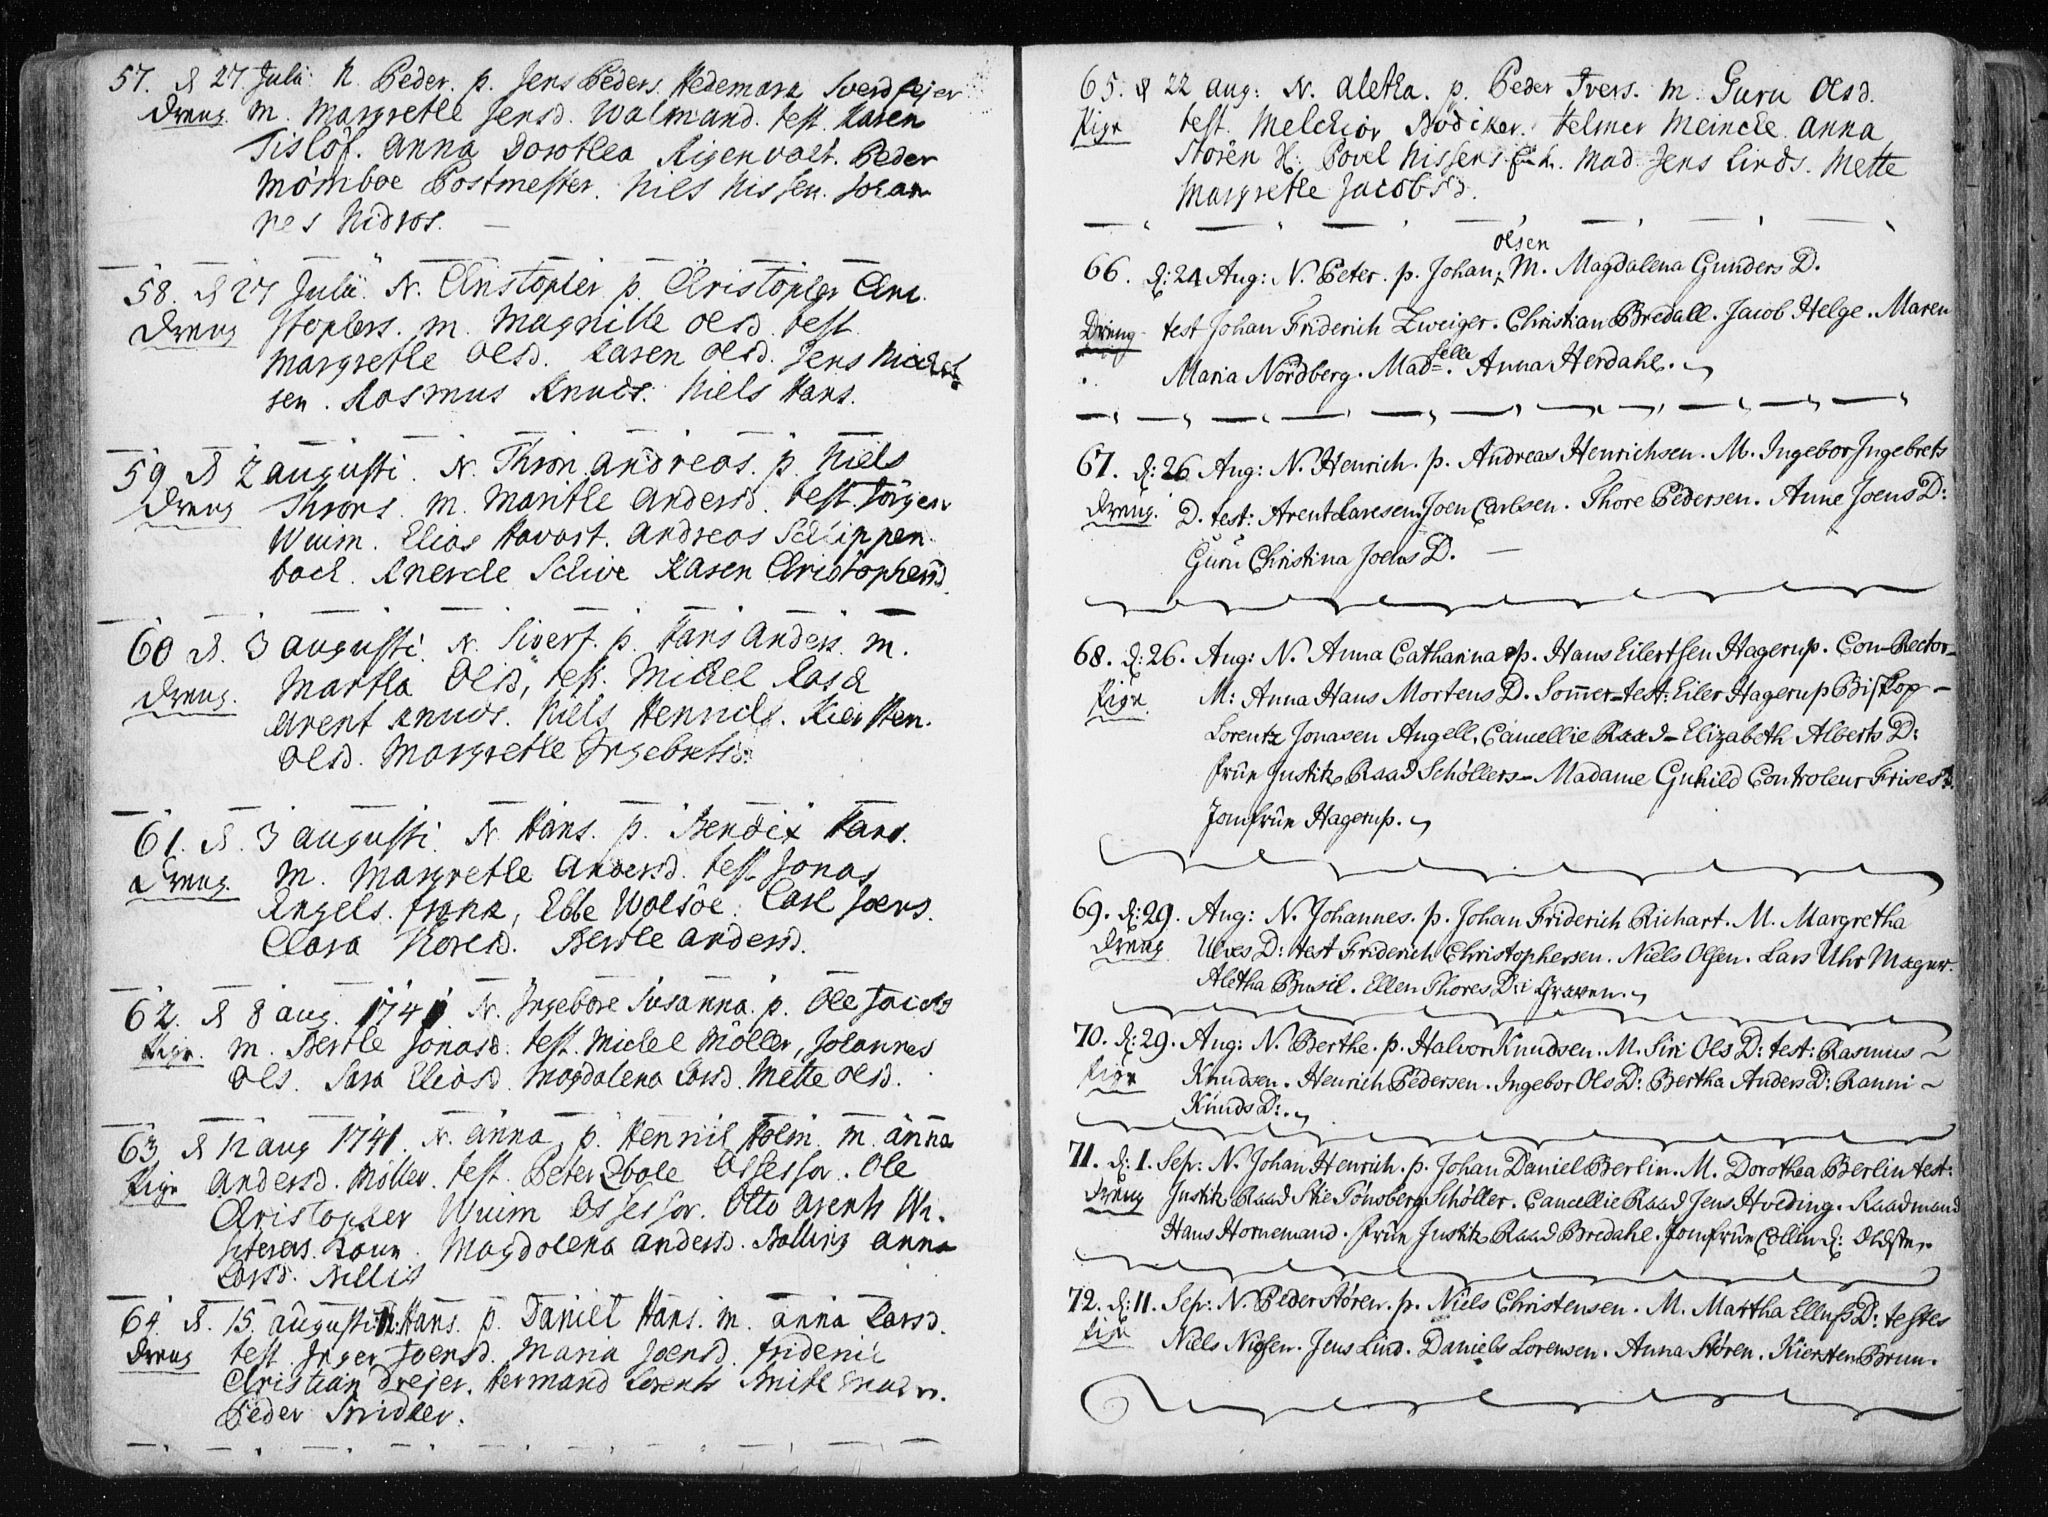 57. d 27 Julii N. Peder. p. Jens Peders. Hedemark Sverdfejer
Dreng. m. Margrethe Jensd. Walmand. test. Karen
Tislöf. Anna Dorothea Rigenvalt. Peder
Mömboe Postmester. Niels Nissen. Johan
nes Nidros.
58. d 27 Julii. N. Christopher p. Christopher Chri
Dreng stophers. m. Magnille Olsd. test
Margrethe Olsd. Karen Olsd. Jens Michel
sen. Rasmus Knuds. Niels Hans.
59 d 2 augusti. N. Thron andreas. p. Niels
Dreng Throns. m. Marithe Andersd. test. Jörgen
Wuim. Elias Havart. Andreas Schippen
bach. Schive Karen Christophersd.
60 d. 3 augusti. N. Sivert. p. Hans Anders. m.
Dreng. Martha Olsd, test. Michel Rasch
Arent Knuds. Niels Henrichs. Kiersten.
Olsd. Margrethe Ingebretsd.
61. d. 3 augusti. N. Hans. p. Bendix Hans.
Dreng. m. Margrethe Andersd. test Jonas
Angels. Ebbe Wolsöe. Carl Joens.
Clara Thoresd. Berthe Andersd.
62. d 8 aug. 1741 N. Ingebore Susanna. p. Ole Jacobs
Pige. m. Berthe Jonasd. test. Michel Möller, Johannes
Ols. Sara Eliasd. Magdalena Larsd. Mette Olsd.
63 d 12 aug 1741. N. anna, p. Henrich Holm. m. anna
Pige Andersd. Möller. test. Peter Assessor. Ole
Christopher Wuim Assessor. Otto Arents
Magdalena Andersd. Balling Anna
Larsd. Nillis
64 d. 15. augusti N. Hans. p. Daniel Hans. m. anna Larsd.
Dreng test. Inger Joensd. Maria Joensd. Friderich
Christian Drejer. Hermand Lorents Smith
Peder Smidher.
65. d 22 aug: N. aletha. p. Peder Ivers. m. Guru Olsd.
Pige test. Melchior Bödicker. Helmer Meincke. Anna
Stören H: Povel Nissens Mad. Jens Linds. Mette
Margrethe Jacobsd.
olsen
66. d: 24 Aug: N. Peter. p. Johan, M. Magdalena Gunders D.
Dreng test Johan Friderich Zweiger. Christian Bredall. Jacob Helge. Maren
Maria Nordberg. Madselle. Anna Herdahl.
67. d: 26 Aug: N. Henrich. p. Andreas Henrichsen. M. Ingebor Ingebrets
Dreng. D. test: Arent Larsen. Joen Carlsen. Thore Pedersen. Anne Joens D:
Guru Christina Joens D.
68. d: 26. Aug: N. Anna Catharina p. Hans Eilertsen Hagerup. Con-Rector
Pige. M: Anna Hans Mortens D. Sommer test: Eiler Hagerup Biskop
Lorentz Jonasen Angell, Cancellie Raad Elizabeth Alberts D:
frue Justitz Raad Schöllers Madame Gunild Controleur Frises
Jomfrue Hagerup.
69. d: 29. Aug: N. Johannes. p. Johan Friderich Richart. M. Margretha
Dreng Ulves D: test Friderich Christophersen. Niels Olsen. Lars Uhr Mager.
Aletha Busil. Ellen Thores D: Graven.
70. d: 29. Aug: N. Berthe. p. Halvor Knudsen. M. Siri Ols D: test: Rasmus
Pige Knudsen. Henrich Pedersen. Ingebor Ols D: Bertha Anders D: Ranni
Knuds D:.
71. d: 1. Sep: N. Johan Henrich. p. Johan Daniel Berlin. M. Dorothea Berlin test:
Dreng Justitz Raad Stie Tönsberg Schöller. Cancellie Raad Jens Hveding. Raadmand
Hans Hornemand. frue Justitz Raad Bredahl. Jomfrue Collin d: Oldste.
72. d: 11. Sep: N. Peder Stören. p. Niels Christensen. M. Martha Ellufs D: testes
Pige Niels Nissen. Jens Lind. Daniels Lorensen. Anna Stören. Kiersten Brun.